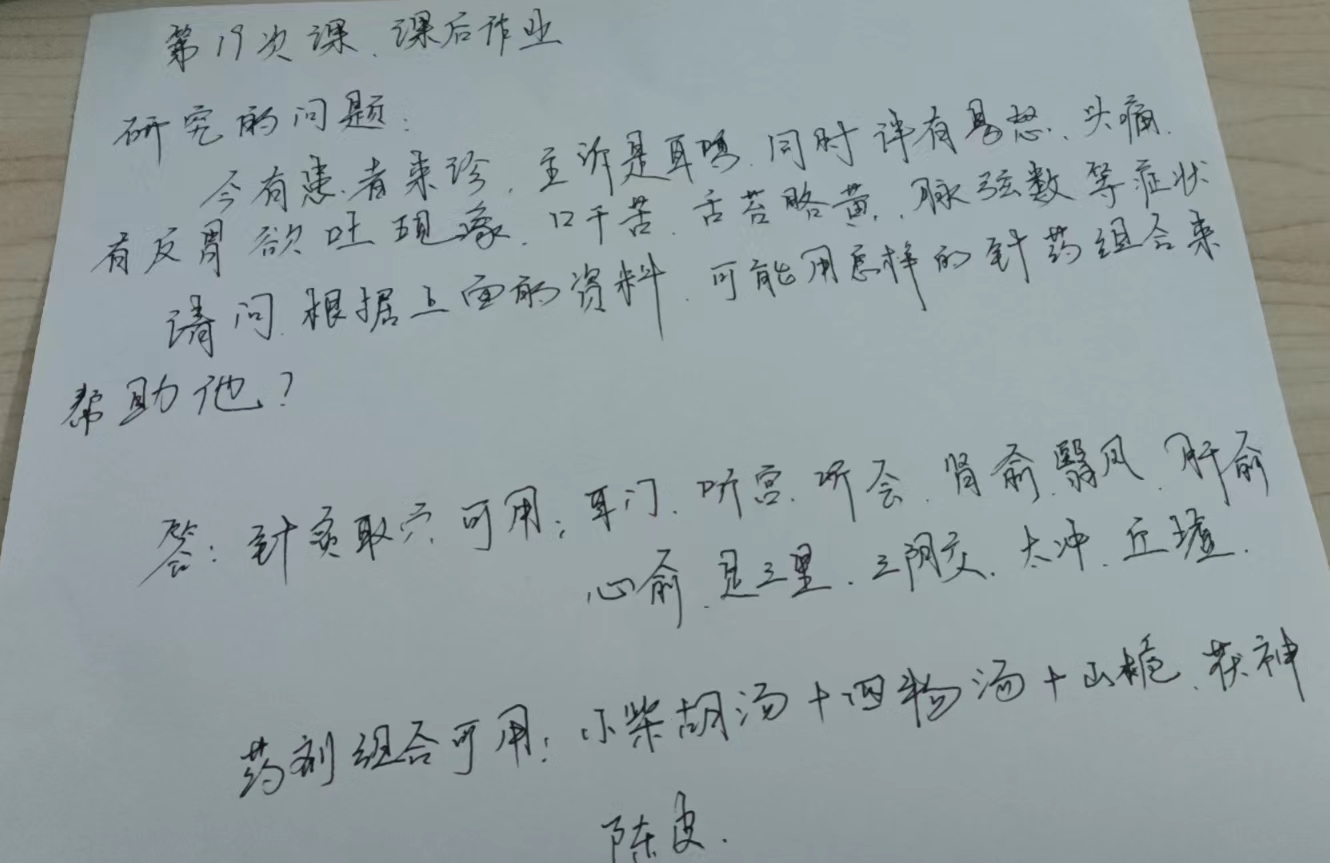 第19次课、课后作业
研究的问题：
今有患者来珍，主诉是耳鸣、同时伴有易怒、头痛、
有反胃欲吐现象、口干苦、舌苔略黄、脉弦数等症状
请问、根据上面的资料、可能用怎样的针药组合来
帮助他？
答：针灸取穴可用：耳门、听宫、听会、肾俞、翳风、肝俞
心俞、足三里、三阴交、太冲、丘墟.
药剂组合可用：小柴胡汤＋四物汤＋山栀、茯神
陈皮.